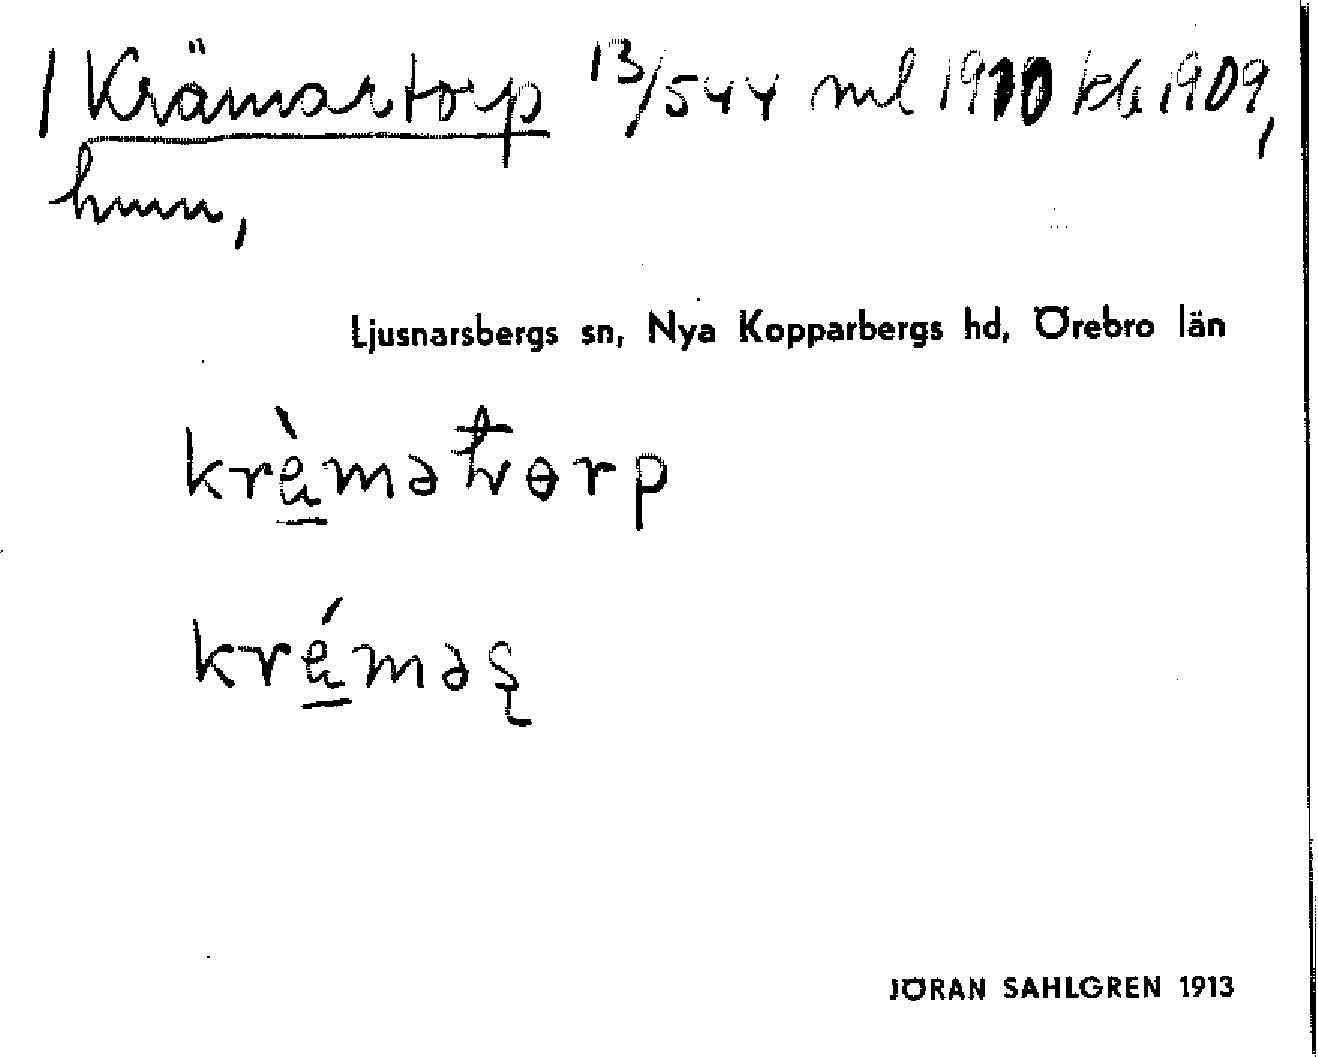 / Krämartorp 13/544 ml 1910 kbl 1909,
hmn,
Ljusnarsbergs sn, Nya Kopparbergs hd, Örebro län
krèmətorp
krémas
JÖRAN SAHLGREN 1913